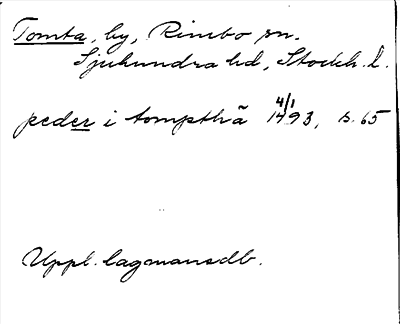 Tomta, by, Rimbo sn.
Sjuhundra hd, Stockh. l.
peder i tompthā 4/1 1493, s. 65
Uppl. lagmansdb.